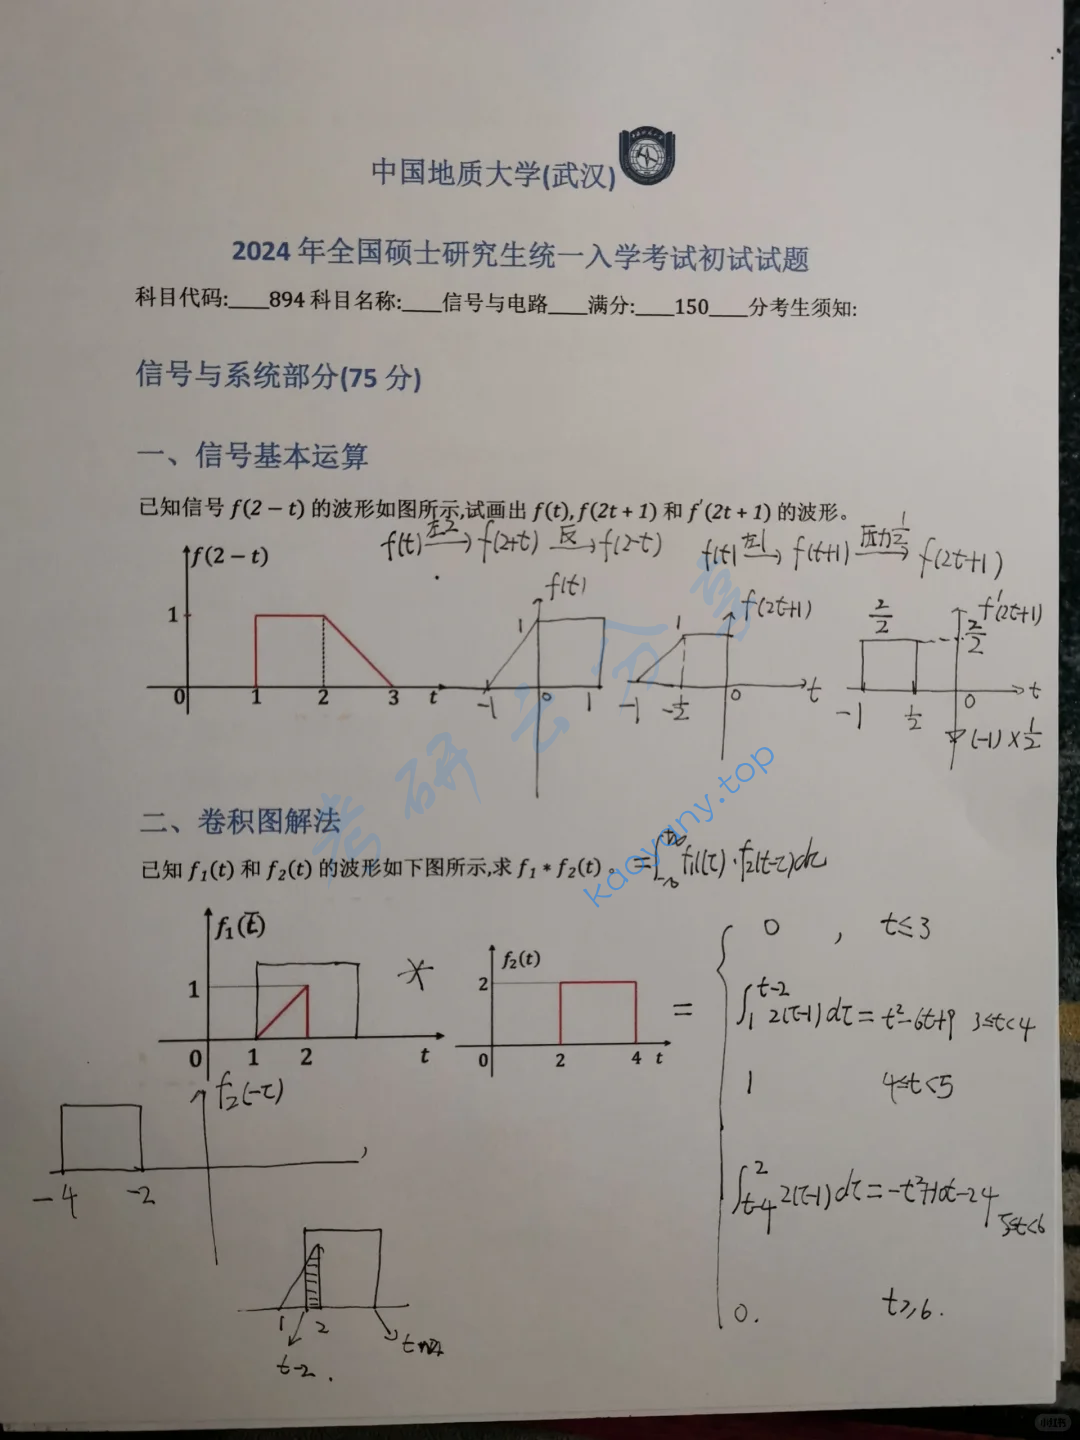 中国地质大学(武汉)
2024 年全国硕士研究生统一入学考试初试试题
科目代码:____894 科目名称:____信号与电路____满分:____150____分考生须知:
信号与系统部分(75 分)
一、信号基本运算
已知信号 f(2 − t) 的波形如图所示,试画出 f(t), f(2t + 1) 和 f′(2t + 1) 的波形。
f(t) 左2→ f(2+t) 反→ f(2-t) f(t) 左1→ f(t+1) 压力1/2→ f(2t+1)
f(2 − t)
1
0 1 2 3 t
f(t)
1
-1 0 1
f(2t+1)
1
-1 -1/2 0 t
f'(2t+1)
2/2 2/2
-1 1/2 0 t
(-1)×1/2
考研云分享
kaoyany.top
二、卷积图解法
已知 f₁(t) 和 f₂(t) 的波形如下图所示,求 f₁ ∗ f₂(t) 。 =∫_{-∞}^{∞} f₁(τ)·f₂(t-τ)dτ
f₁(t)
1
0 1 2 t
*
f₂(t)
2
0 2 4 t
=
0 , t≤3
∫_1^{t-2} 2(τ-1)dτ = t²-6t+9 3≤t<4
1 4≤t<5
∫_{t-4}^2 2(τ-1)dτ = -t²+10t-24 5≤t<6
0. t≥6.
f₂(-τ)
-4 -2
1 2
t-2.
小红书